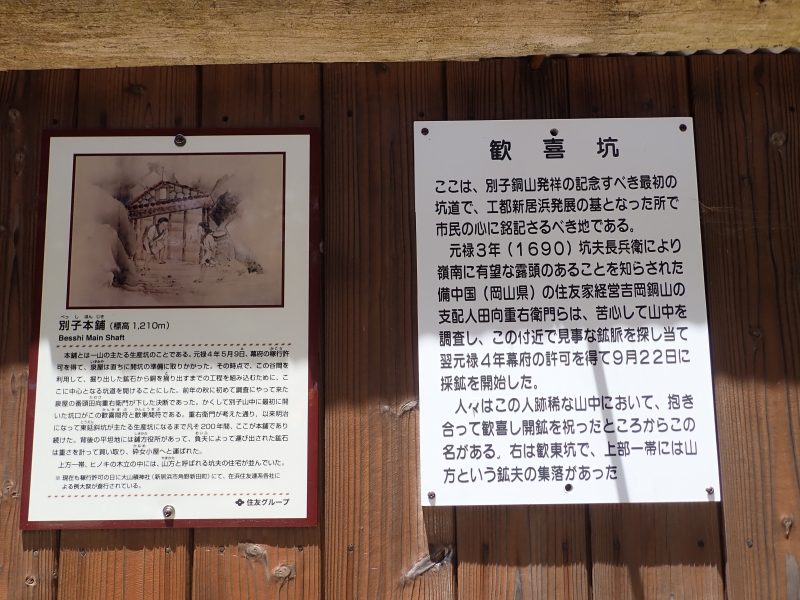 べっし ほん じき
別子本鋪 (標高 1,210m)
Besshi Main Shaft
本鋪とは一山の主たる生産坑のことである。元禄4年5月9日、幕府の稼行許
可を得て、泉屋は直ちに開坑の準備に取りかかった。その時点で、この谷間を
利用して、掘り出した鉱石から銅を搾り出すまでの工程を組み込むために、こ
こに中心となる坑道を開けることにした。前年の秋に初めて調査にやって来た
泉屋の番頭田向重右衛門が下した決断であった。かくして別子山中に最初に開
いた坑口がこの歓喜間符と歓東間符である。重右衛門が考えた通り、以来明治
になって東延斜坑が主たる生産坑になるまで凡そ200年間、ここが本鋪であり
続けた。背後の平坦地には鋪方役所があって、負夫によって運び出された鉱石
は重さを計って買い取り、砕女小屋へと運ばれた。
上方一帯、ヒノキの木立の中には、山方と呼ばれる坑夫の住宅が並んでいた。
※ 現在も稼行許可の日に大山積神社(新居浜市角野新田町)にて、在浜住友連系各社に
よる例大祭が斎行されている。
住友グループ
歓喜坑
ここは、別子銅山発祥の記念すべき最初の
坑道で、工都新居浜発展の基となった所で
市民の心に銘記さるべき地である。
元禄3年(1690)坑夫長兵衛により
嶺南に有望な露頭のあることを知らされた
備中国(岡山県)の住友家経営吉岡銅山の
支配人田向重右衛門らは、苦心して山中を
調査し、この付近で見事な鉱脈を探し当て
翌元禄4年幕府の許可を得て9月22日に
採鉱を開始した。
人々はこの人跡稀な山中において、抱き
合って歓喜し開鉱を祝ったところからこの
名がある。右は歓東坑で、上部一帯には山
方という鉱夫の集落があった